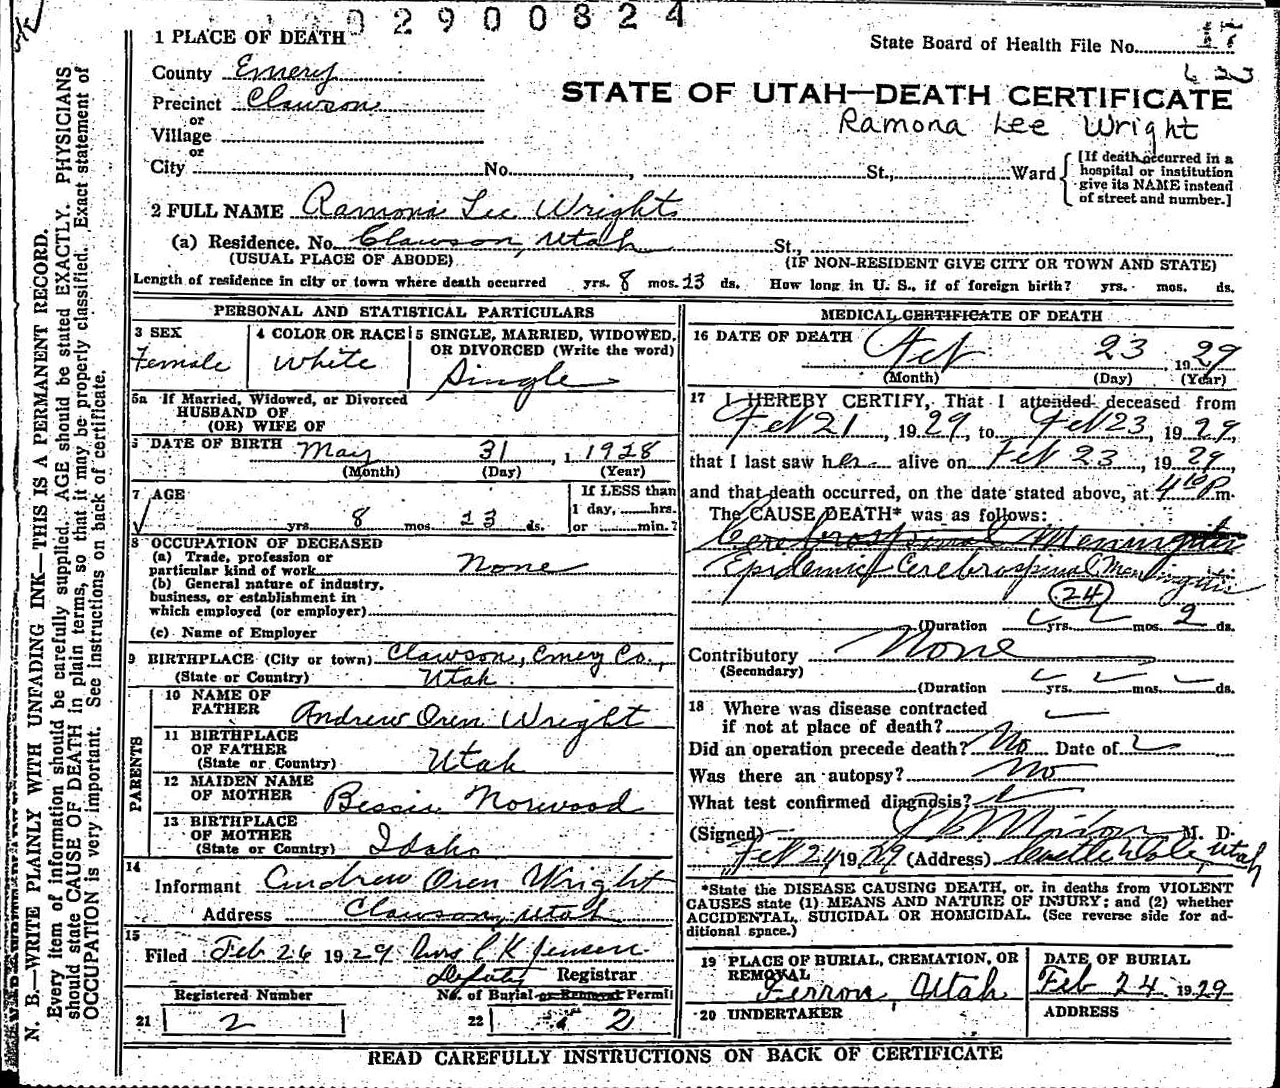 02900824
1 PLACE OF DEATH
State Board of Health File No. 17
County Emery
Precinct Clawson
STATE OF UTAH—DEATH CERTIFICATE
or
Village
Ramona Lee Wright
or
City No. , St., Ward
[If death occurred in a hospital or institution give its NAME instead of street and number.]
2 FULL NAME Ramona Lee Wright
(a) Residence. No. Clawson, Utah St.,
(USUAL PLACE OF ABODE) (IF NON-RESIDENT GIVE CITY OR TOWN AND STATE)
Length of residence in city or town where death occurred yrs. 8 mos. 23 ds. How long in U. S., if of foreign birth? yrs. mos. ds.
PERSONAL AND STATISTICAL PARTICULARS
3 SEX Female
4 COLOR OR RACE White
5 SINGLE, MARRIED, WIDOWED, OR DIVORCED (Write the word) Single
5a If Married, Widowed, or Divorced
HUSBAND OF
(OR) WIFE OF
DATE OF BIRTH May 31, 1928
(Month) (Day) (Year)
7 AGE yrs. 8 mos. 23 ds.
If LESS than 1 day, hrs. or min.?
8 OCCUPATION OF DECEASED
(a) Trade, profession or
particular kind of work None
(b) General nature of industry,
business, or establishment in
which employed (or employer)
(c) Name of Employer
9 BIRTHPLACE (City or town) Clawson, Emery Co.,
(State or Country) Utah
PARENTS
10 NAME OF FATHER Andrew Oren Wright
11 BIRTHPLACE OF FATHER (State or Country) Utah
12 MAIDEN NAME OF MOTHER Bessie Norwood
13 BIRTHPLACE OF MOTHER (State or Country) Idaho
14
Informant Andrew Oren Wright
Address Clawson, Utah
15
Filed Feb 26 1929 Mrs C K Jensen
Deputy Registrar
Registered Number
21 2
No. of Burial or Removal Permit
22 2
MEDICAL CERTIFICATE OF DEATH
16 DATE OF DEATH Feb 23, 1929
(Month) (Day) (Year)
17 I HEREBY CERTIFY, That I attended deceased from
Feb 21, 1929, to Feb 23, 1929,
that I last saw her alive on Feb 23, 1929,
and that death occurred, on the date stated above, at 4 10 P.m.
The CAUSE DEATH* was as follows:
Cerebrospinal Meningitis
Epidemic Cerebrospinal Meningitis
24
(Duration yrs. mos. 2 ds.
Contributory None
(Secondary)
(Duration yrs. mos. ds.
18 Where was disease contracted
if not at place of death?
Did an operation precede death? No Date of
Was there an autopsy? No
What test confirmed diagnosis?
(Signed) M. D.
Feb 24 1929 (Address) Castle Dale, Utah
*State the DISEASE CAUSING DEATH, or, in deaths from VIOLENT
CAUSES state (1) MEANS AND NATURE OF INJURY; and (2) whether
ACCIDENTAL, SUICIDAL OR HOMICIDAL. (See reverse side for ad-
ditional space.)
19 PLACE OF BURIAL, CREMATION, OR REMOVAL Ferron, Utah
DATE OF BURIAL Feb 24 1929
20 UNDERTAKER
ADDRESS
READ CAREFULLY INSTRUCTIONS ON BACK OF CERTIFICATE
N. B.—WRITE PLAINLY WITH UNFADING INK—THIS IS A PERMANENT RECORD.
Every item of information should be carefully supplied. AGE should be stated EXACTLY. PHYSICIANS
should state CAUSE OF DEATH in plain terms, so that it may be properly classified. Exact statement of
OCCUPATION is very important. See Instructions on back of certificate.